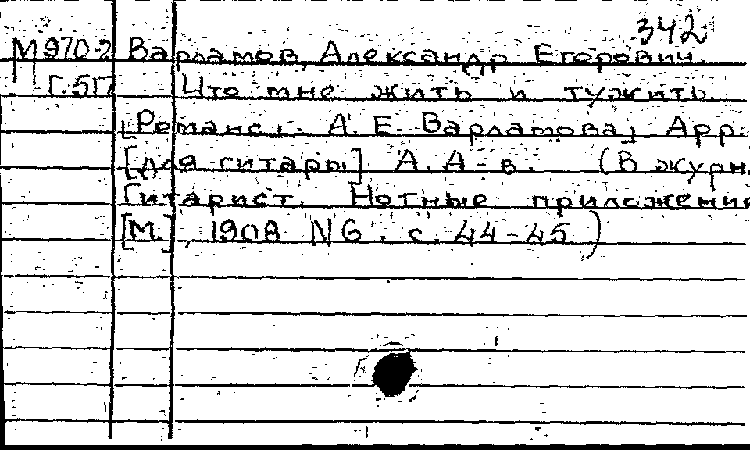 342
М 970-2 Варламов, Александр Егорович.
Г.577 Что мне жить и тужить.
[Романс]. А. Е. Варламова, Арр.
[для гитары] А. А-в. (В журн.
Гитарист. Нотные приложения
[М.], 1908 N 6. с. 44-45)